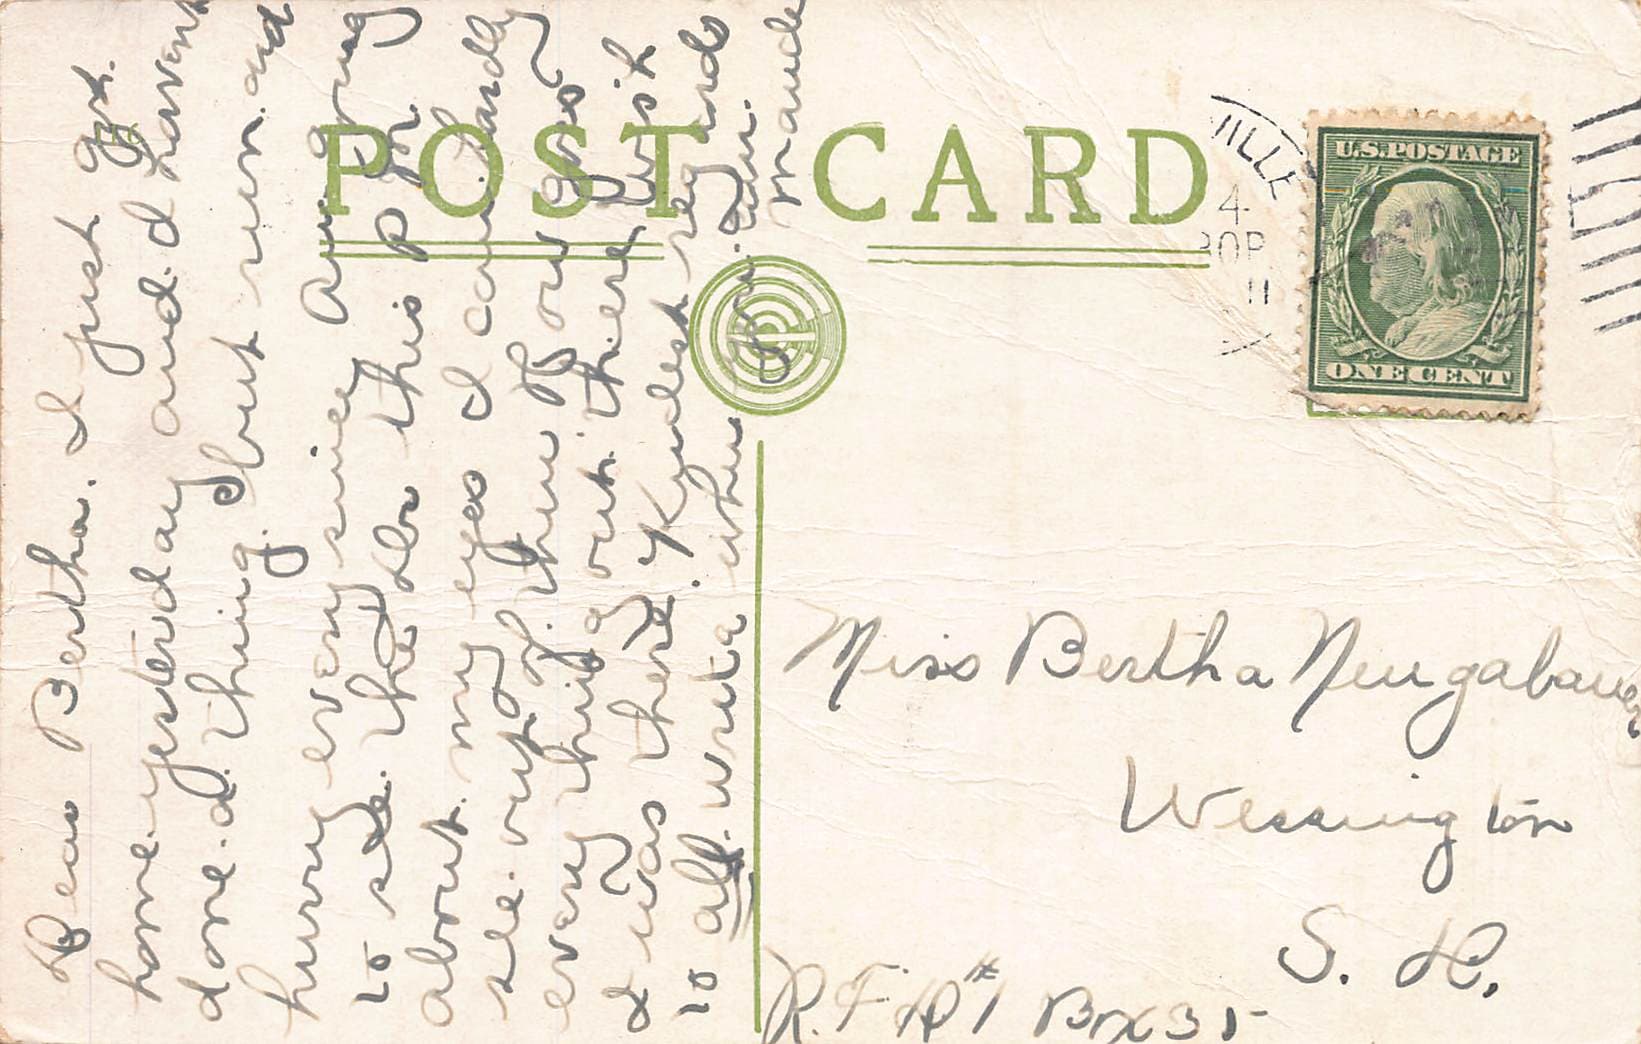 POST CARD
U.S. POSTAGE
ONE CENT
VILLE
4
30P
11
Dear Bertha. I just got
home yesterday and I havent
done. a. thing. but run. and
hurry every since Am going
to see the Dr this P.M.
about my eyes I can hardly
see out of them How goes
every thing out there wish
I was there. Kindest regards
to all. write when You. can.
Maude
Miss Bertha Neugabauer
Wessington
S. D.
R. F. D #1 Box 35